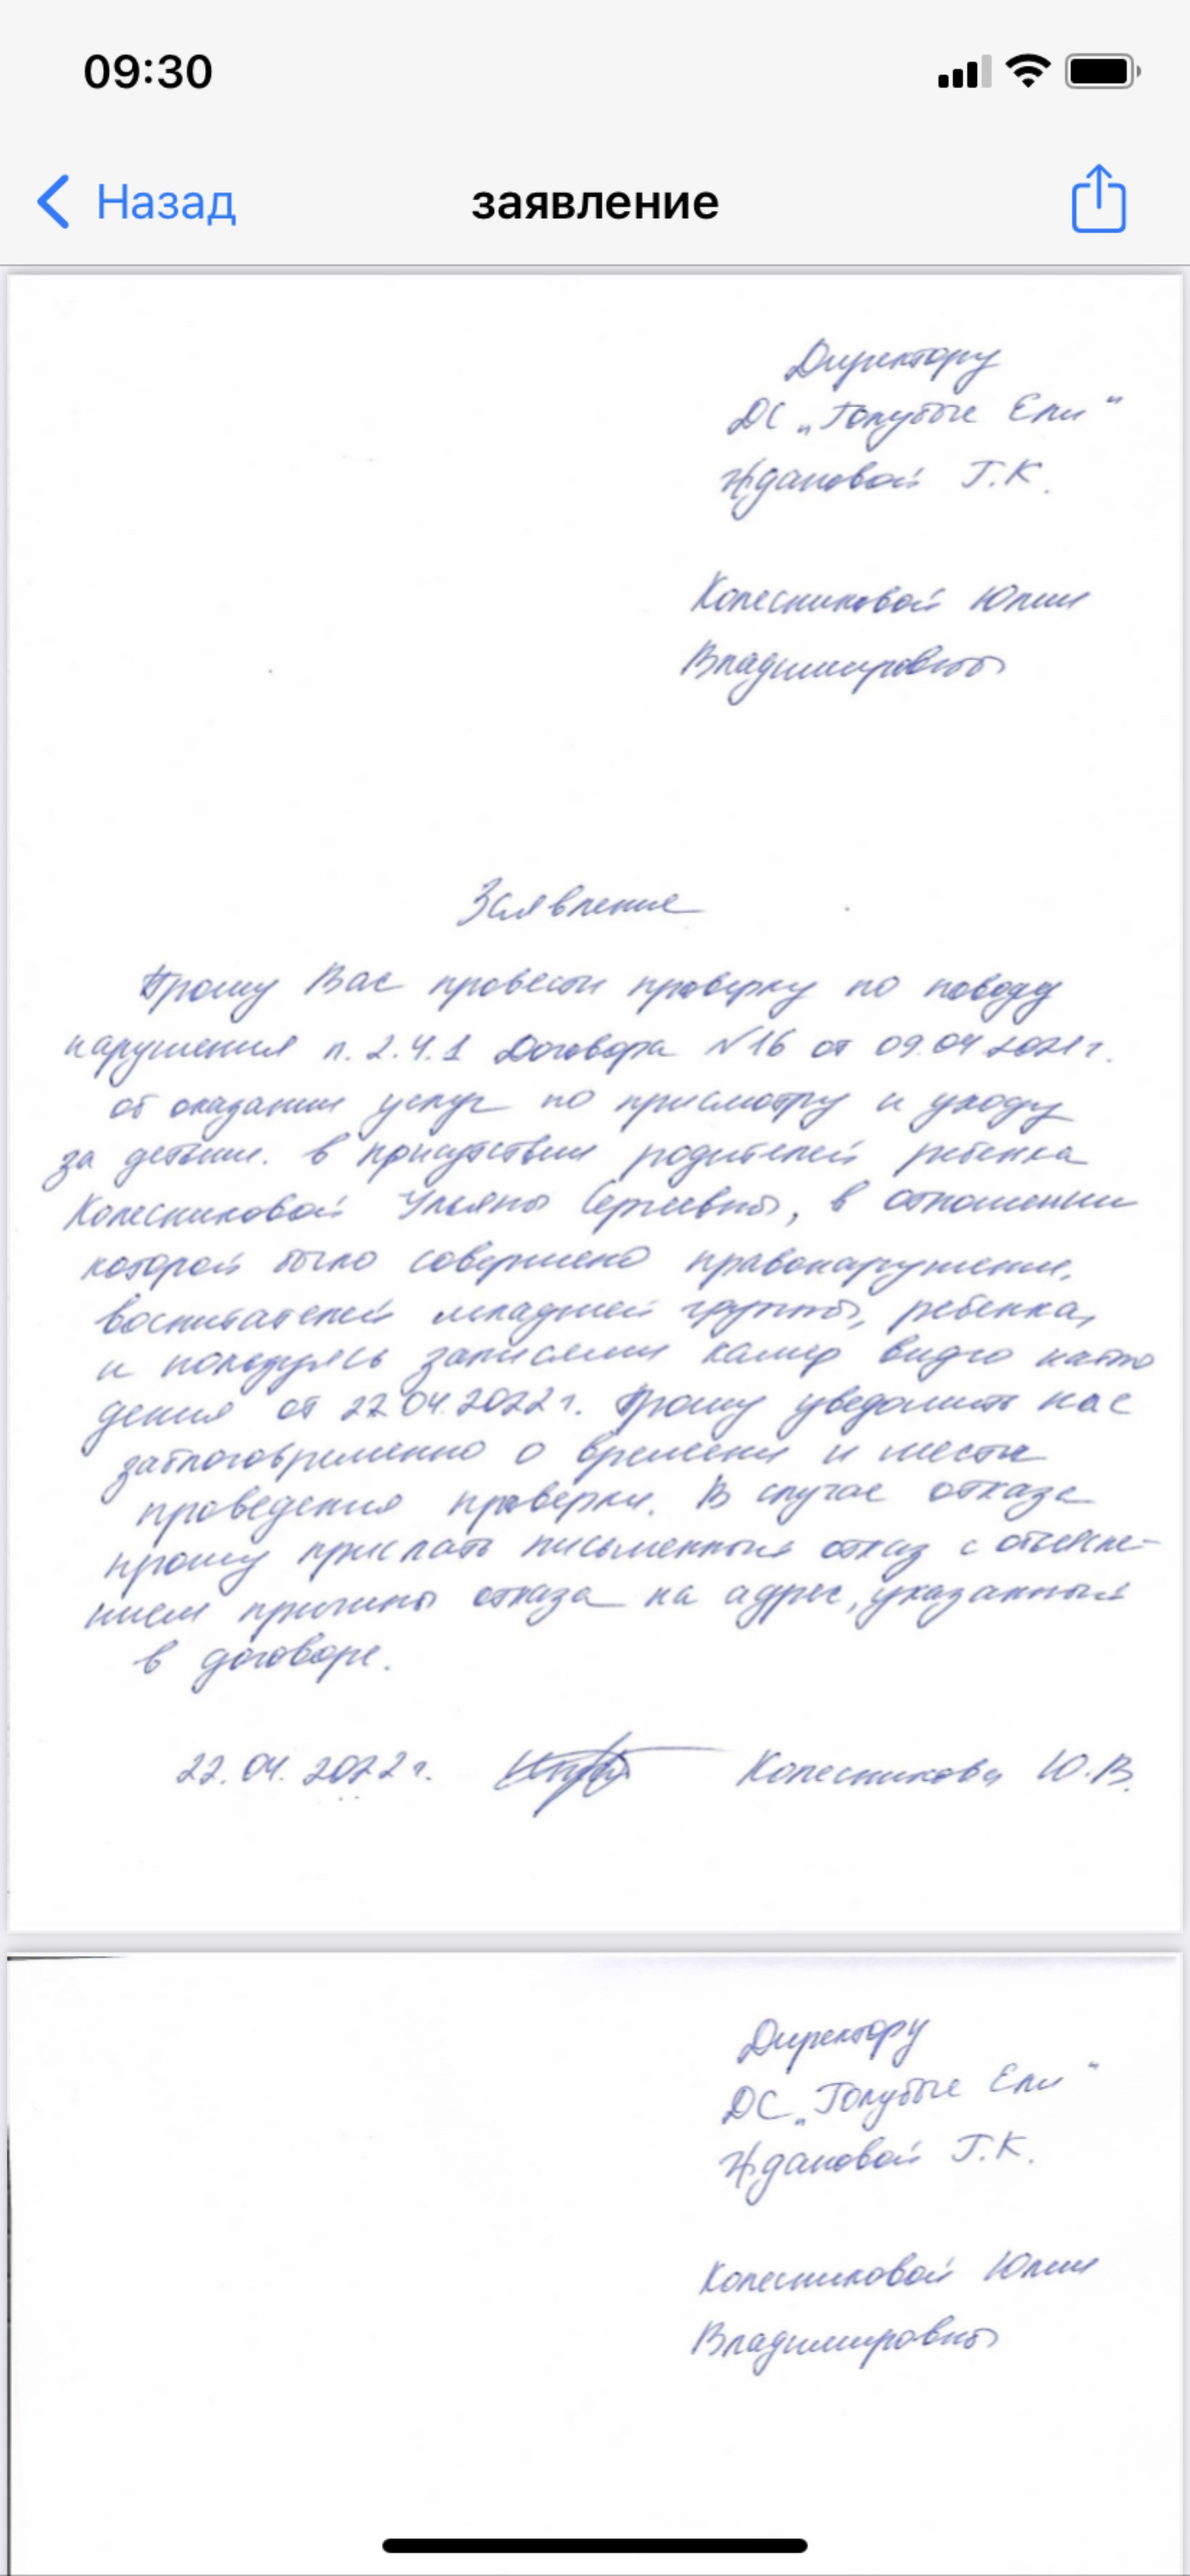 09:30
Назад
заявление
Директору
ДС „Голубые Ели"
Ждановой Г.К.
Колесниковой Юлии
Владимировны
Заявление
Прошу Вас провести проверку по поводу
нарушения п. 2.4.1 Договора №16 от 09.04 2021 г.
об оказании услуг по присмотру и уходу
за детьми. в присутствии родителей ребенка
Колесниковой Ульяны Сергеевны, в отношении
которой было совершено правонарушение,
воспитателей младшей группы, ребенка,
и пользуясь записями камер видео наблю
дения от 22.04.2022 г. Прошу уведомить нас
заблаговременно о времени и месте
проведения проверки. В случае отказа
прошу прислать письменный отказ с
нием причины отказа на адрес, указанный
в договоре.
22.04.2022 г. Колесникова Ю.В.
Директору
ДС „Голубые Ели"
Ждановой Г.К.
Колесниковой Юлии
Владимировны